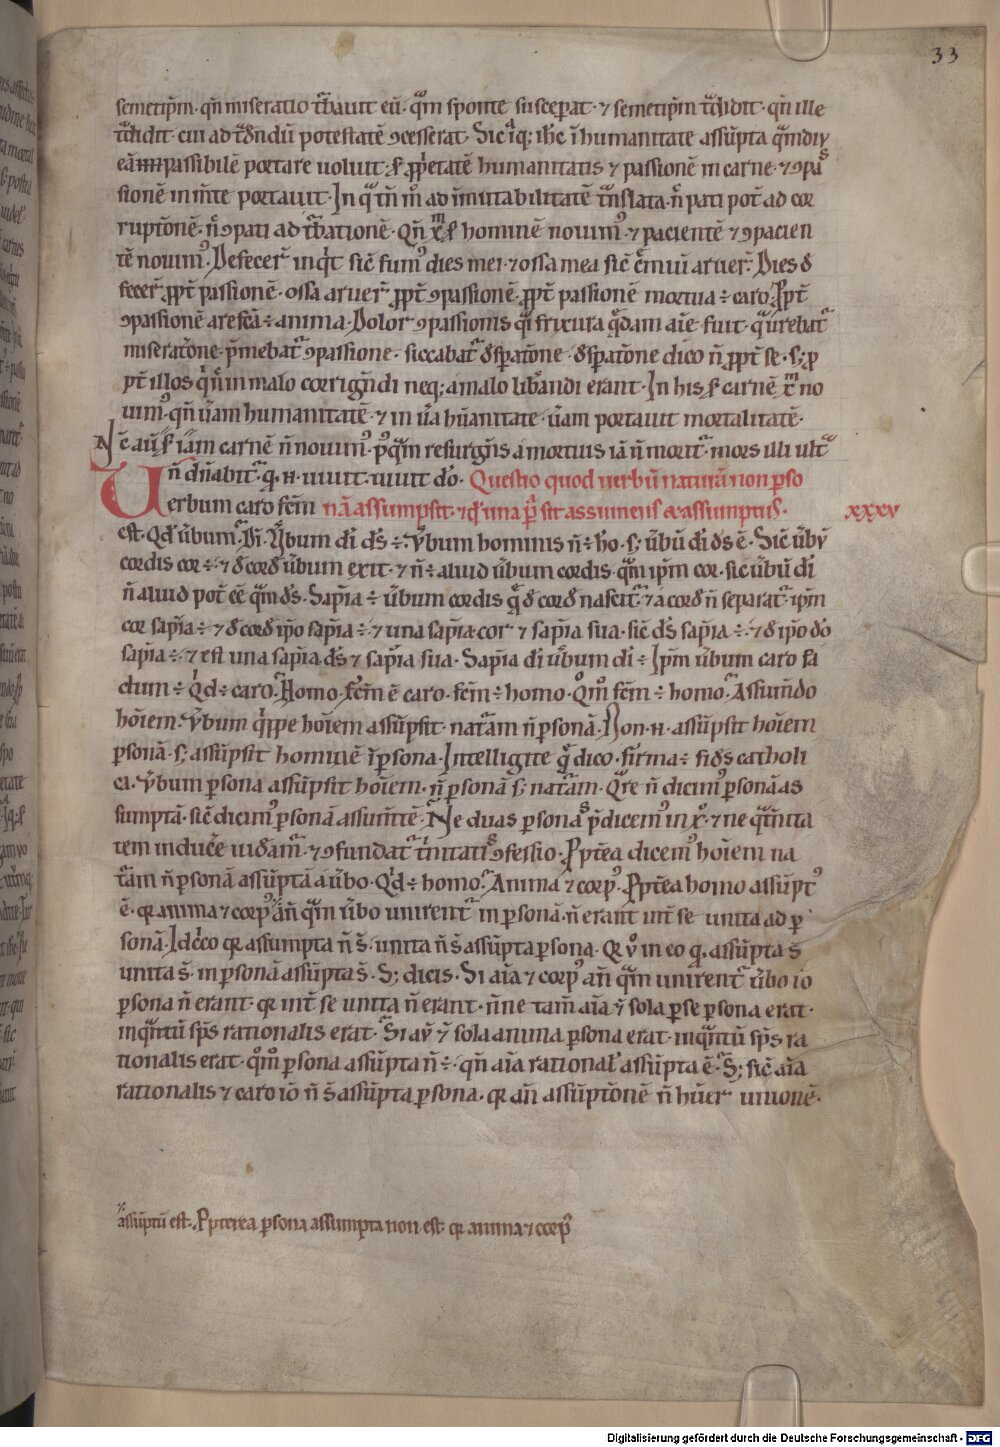 33
semetip̄m · qn̄ miseratio t͛bauit eū · q̄m sponte susceperat · ⁊ semetip̄m t͛didit · qn̄ ille
t͛didit cui ad t͛dndū potestatē ꝯcesserat · Sic itaq; ih̄c ī humanitate assūpta
passibilē portare uoluit · humanitatis ⁊ passionē in carne · ⁊ ꝯpas
sionē in m̄te portauit · In ad īmutabilitatē t͛nslata · n̄ pati pot̄ ad cor
ruptōnē · n̄ ꝯpati ad t͛bationē · hominē nouimꝰ · ⁊ pacientē ⁊ ꝯpacien
tē nouimꝰ · Defecer̄ inq͛t sic̄ fumꝰ dies mei · ⁊ ossa mea sic̄ c͛miū aruer̄ · Dies d̄
fecer̄ ꝓpt̄ passionē · ossa aruer̄ ꝓpt̄ ꝯpassionē · ꝓpt̄ passionē mortua ÷ caro · Ꝓpt̄
ꝯpassionē arefc̄a ÷ anima · Dolor ꝯpassionis q͛i frixura q͛dam aīe fuit · q̄ urebat͛
miseratōne · p͛mebat͛ ꝯpassione · siccabat͛ d̄sp̱atōne · d̄sp̱atōne dico n̄ ꝓpt̄ se · s; ꝓ
pt̄ illos in malo corrign̄di neq; a malo lib̄andi erant · In his carnē no
uimꝰ · qn̄ ūam humanitatē · ⁊ in ūa hūanitate ūam portauit mortalitatē ·
Nc̄ aū iām carnē n̄ nouimꝰ · p̱ꝰq̄m resurgn̄s a mortuis iā n̄ morit͛ · mors illi ult͛
n̄ dn̄abit͛ · q̱ · n · uiuit · uiuit dō · Questio quod uerbū naturā non p̱so
Uerbum caro fc̄m nā assumpsit · ⁊ qd̄ una p̱ sit assumens & assumptus · xxxv
est · Qd̄ ūbum · Di · Ūbum di ds̄ ÷ · Ūbum hominis n̄ ÷ ho · s; ūbū di ds̄ ē · Sic̄ ūbū
cordis cor ÷ · ⁊ d̄ cord̄ ūbum exit · ⁊ n̄ ÷ aliud ūbum cordis q̄m ip̄m cor · sic ūbū di
n̄ aliud pot̄ ēē q̄m ds̄ · Sap̄ia ÷ ūbum cordis q̄ d̄ cord̄ nascit͛ · ⁊ a cord̄ n̄ separat͛ · ip̄m
cor sap̄ia ÷ · ⁊ d̄ cord̄ ip̄o sap̄ia ÷ · ⁊ una sap̄ia cor ⁊ sap̄ia sua · sic̄ ds̄ sap̄ia ÷ · ⁊ d̄ ip̄o dō
sap̄ia ÷ · ⁊ est una sap̄ia ds̄ ⁊ sap̄ia sua · Sap̄ia di ūbum di ÷ · Ip̄m ūbum caro fa
ctum ÷ · Qd̄ ÷ caro · Homo · Fc̄m ē caro · fc̄m ÷ homo · Qōm fc̄m ÷ homo · Assum̄do
hoīem · Ūbum q͛ippe hoīem assūpsit · nat͛am n̄ p̱sonā · Non · n · assūpsit hoīem
p̱sonā · s; assūpsit hominē ī p̱sona · Intelligite q̄ dico · firma ÷ fid̄s catholi
ca · Ūbum p̱sona assūpsit hoīem · n̄ p̱sonā s; nat͛am · Q̄re n̄ dicimꝰ p̱sonā as
sumptā · sic̄ dicimꝰ p̱sonā assum̄tē · Ne duas p̱sonas p̄dicemꝰ in xo · ⁊ ne q͛t͛nita
tem induc̄e uid̄am͛ · ⁊ ꝯfundat͛ t͛nitatis ꝯfessio · Ꝓpt̄ea dicemꝰ hoīem na
t͛am n̄ p̱sonā assūptā a ūbo · Qd̄ ÷ homo · Anima ⁊ corpꝰ · Ꝓpt̄ea homo assūptꝰ
ē · qr anima ⁊ corpꝰ an̄ q̄m ūbo unirent͛ in p̱sonā · n̄ erant int̄ se unita ad p̱
sonā · Idcc̄o qr assumpta n̄ s̄ · unita n̄ s̄ assūpta p̱sona · Qr ū in eo q̱ assūpta s̄
unita s̄ · in p̱sonā assūpta s̄ · S; dicis · Si aīa ⁊ corpꝰ an̄ q̄m unirent͛ ūbo iō
p̱sona n̄ erant · qr int̄ se unita n̄ erant · n̄ne tam̄ aīa ū sola p̱ se p̱sona erat ·
inq͛ntū sp̄s rationalis erat · Si aū ū sola anima p̱sona erat · inq͛ntū sp̄s ra
tionalis erat · qōm p̱sona assūpta n̄ ÷ · qn̄ aīa rational̄ assūpta ē · S; sic̄ aīa
rationalis ⁊ caro iō n̄ s̄ assūpta p̱sona · qr an̄ assūptōnē n̄ hūer unionē ·
assūptū est · Ꝓpterea p̱sona assumpta non est qr anima ⁊ corpꝰ
Digitalisierung gefördert durch die Deutsche Forschungsgemeinschaft - DFG